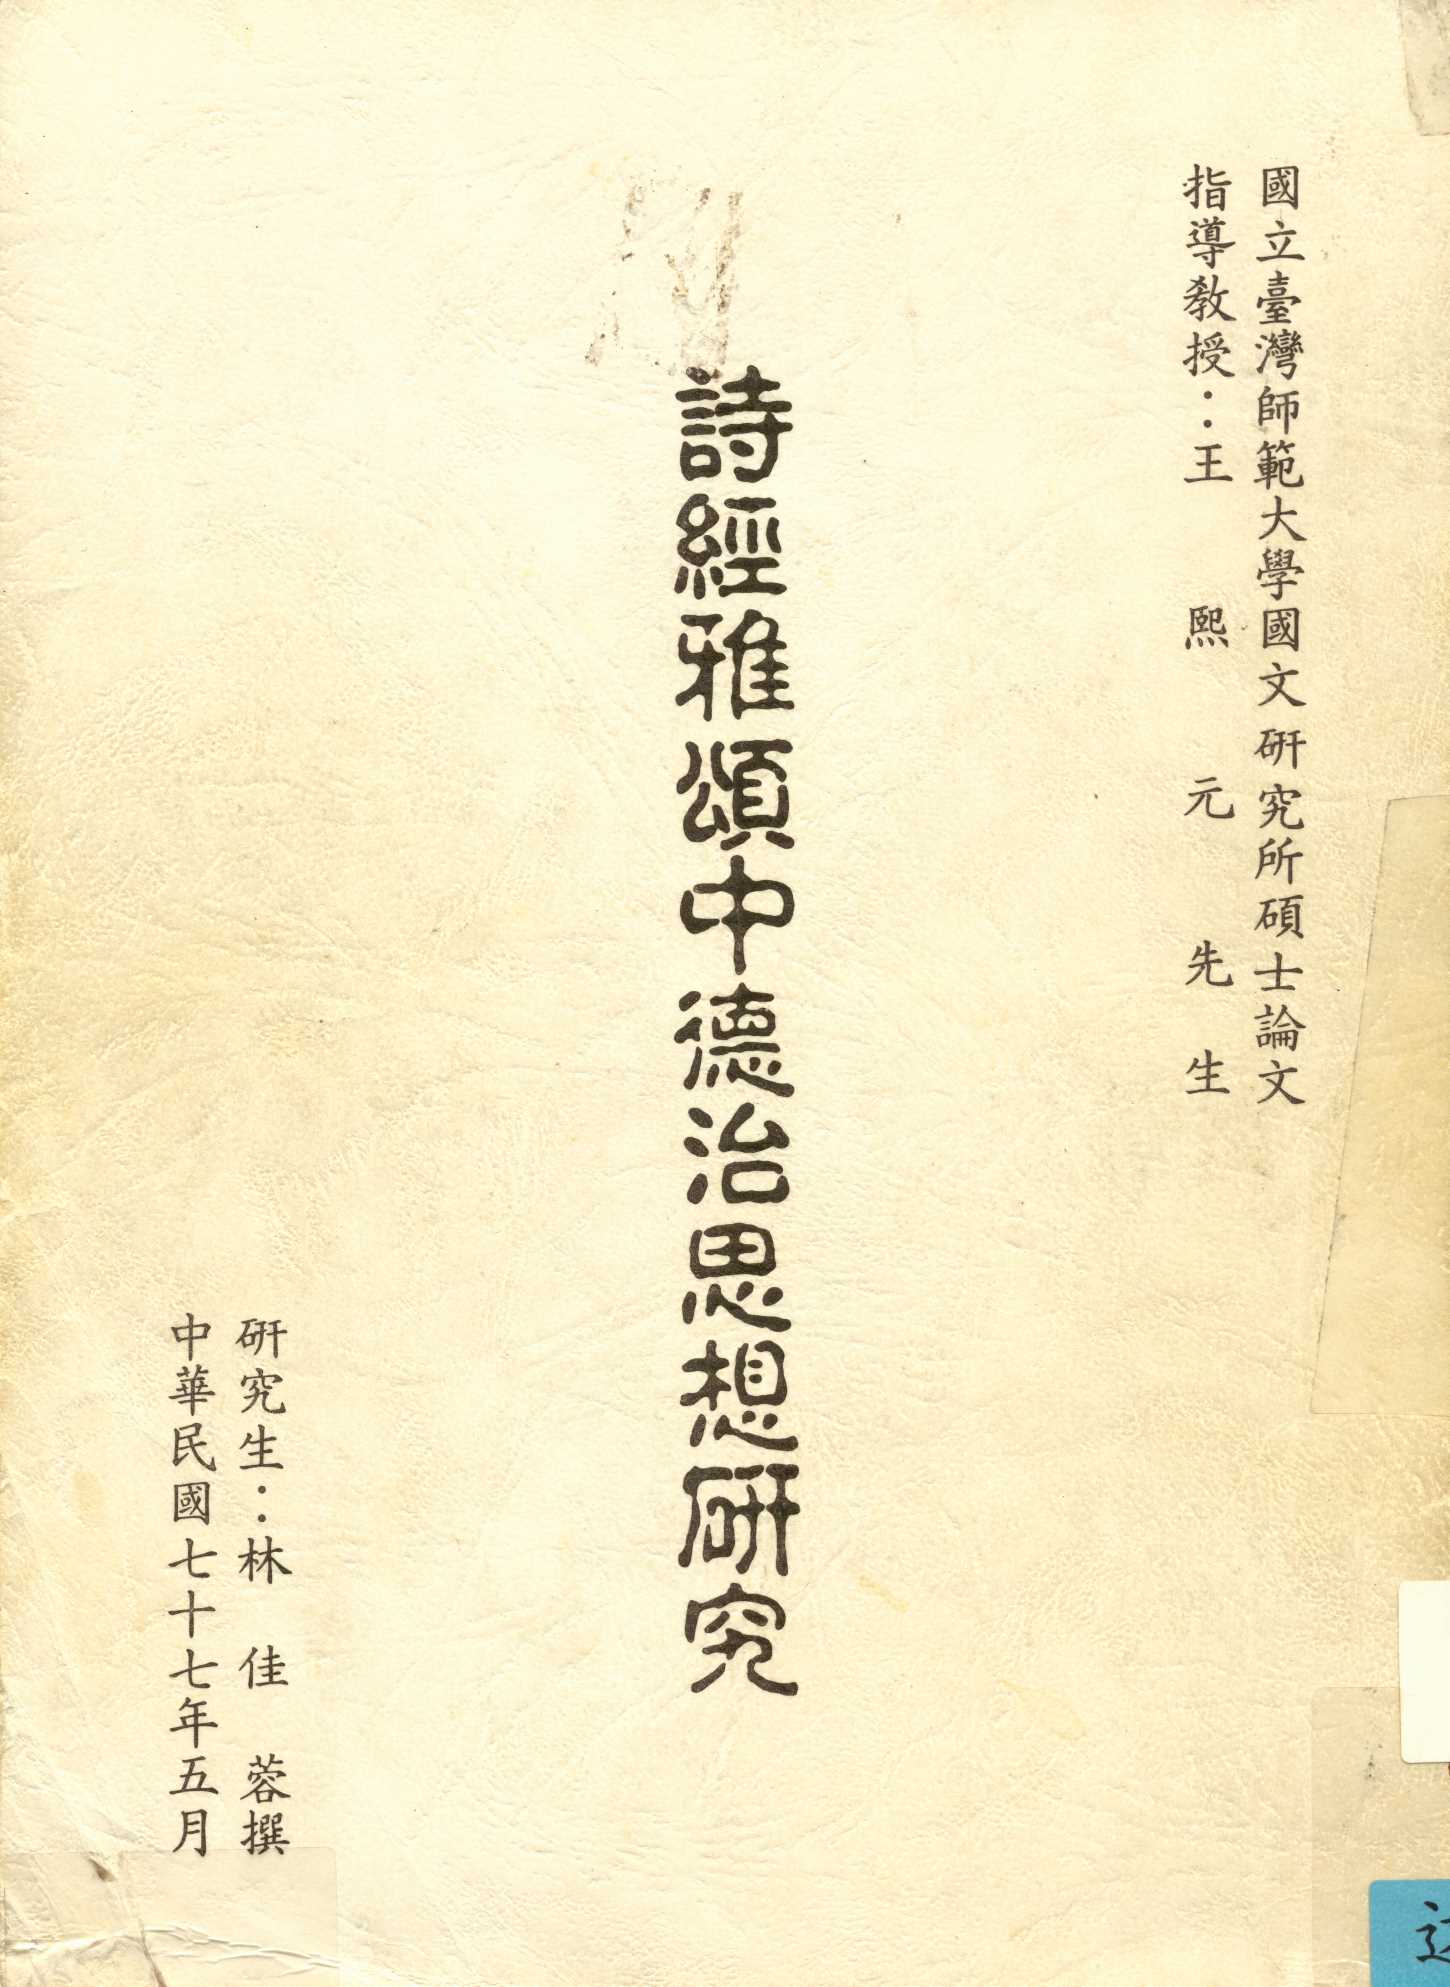 國立臺灣師範大學國文研究所碩士論文
指導教授：王熙元先生
詩經雅頌中德治思想研究
研究生：林佳蓉撰
中華民國七十七年五月